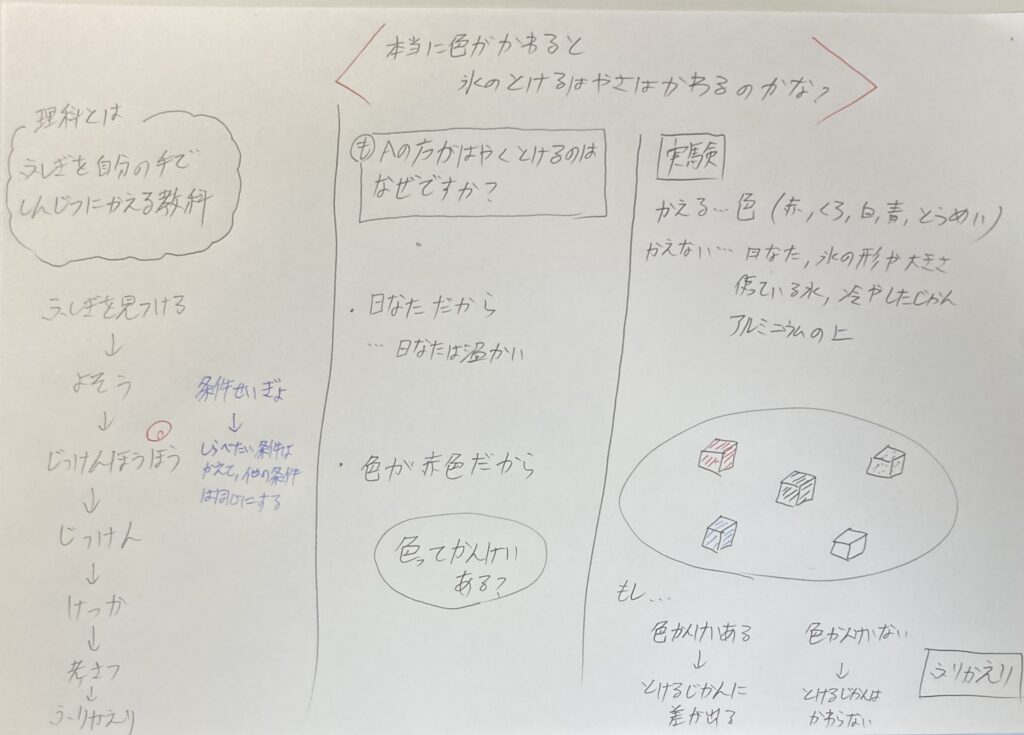 本当に色がかわると
氷のとけるはやさはかわるのかな?
理科とは
ふしぎを自分の手で
しんじつにかえる教科
ふしぎを見つける
↓
よそう
↓
じっけんほうほう
↓
じっけん
↓
けっか
↓
考さつ
↓
ふりかえり
条件せいぎょ
↓
しらべたい条件は
かえて,他の条件
は同じにする
も Aの方がはやくとけるのは
なぜですか?
・日なただから
…日なたは温かい
・色が赤色だから
色ってかんけい
ある?
実験
かえる…色(赤,くろ,白,青,とうめい)
かえない…日なた,氷の形や大きさ
使ている水,冷やしたじかん
アルミニウムの上
もし…
色かんけいある
↓
とけるじかんに
差が出る
色かんけいない
↓
とけるじかんは
かわらない
ふりかえり